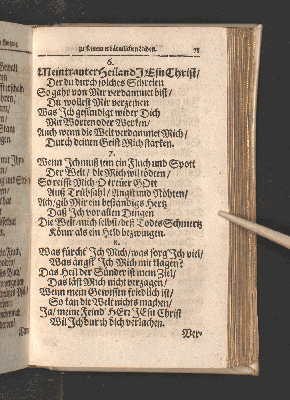 zu seinem erbärmlichen 75
6.
Mein trauter Heiland JEsu Christ/
Der du durch solches Schreien
So gahr von Mir verdammet bist/
Du wollest Mir verzeihen
Was Jch gesündigt wider Dich
Mit Worten oder Werken/
Auch wenn die Welt verdammet Mich/
Durch deinen Geist Mich starken.
7.
Wenn Jch muß sein ein Fluch und Spott
Der Welt/ die Mich wil tödten/
So reisse Mich O treüer GOtt
Auß Trübsahl/ Angst und Nöhten/
Ach/ gib Mir ein bestendigs Hertz
Daß Jch vor allen Dingen
Die Welt/ mich selbst/ deß Todes Schmertz
Könn' als ein Held bezwingen.
8.
Was fürcht' Jch Mich/ was sorg Jch viel/
Was ängst' Jch Mich mit klagen?
Das Heil der Sünder ist mein Ziel/
Das läst Mich nicht verzagen/
Wenn mein Gewissen friedlich ist/
So kan die Welt nichts machen/
Ja/ meine Feind' HErr JEsu Christ
Wil Jch durch dich verlachen.
Ver-